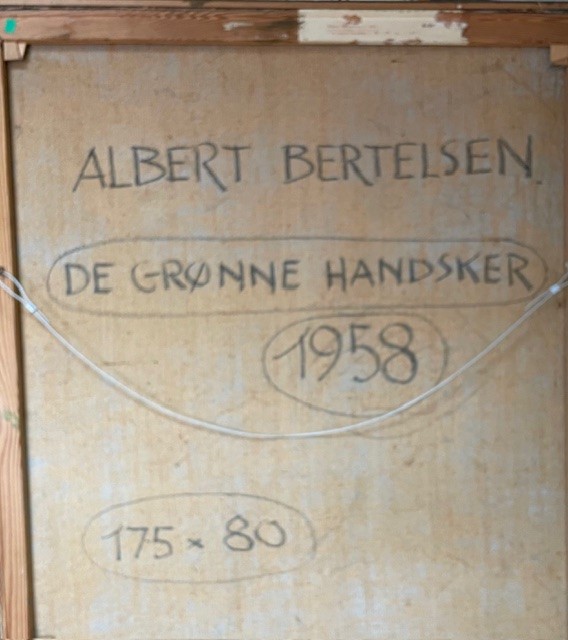 ALBERT BERTELSEN.
DE GRØNNE HANDSKER
1958
175 × 80